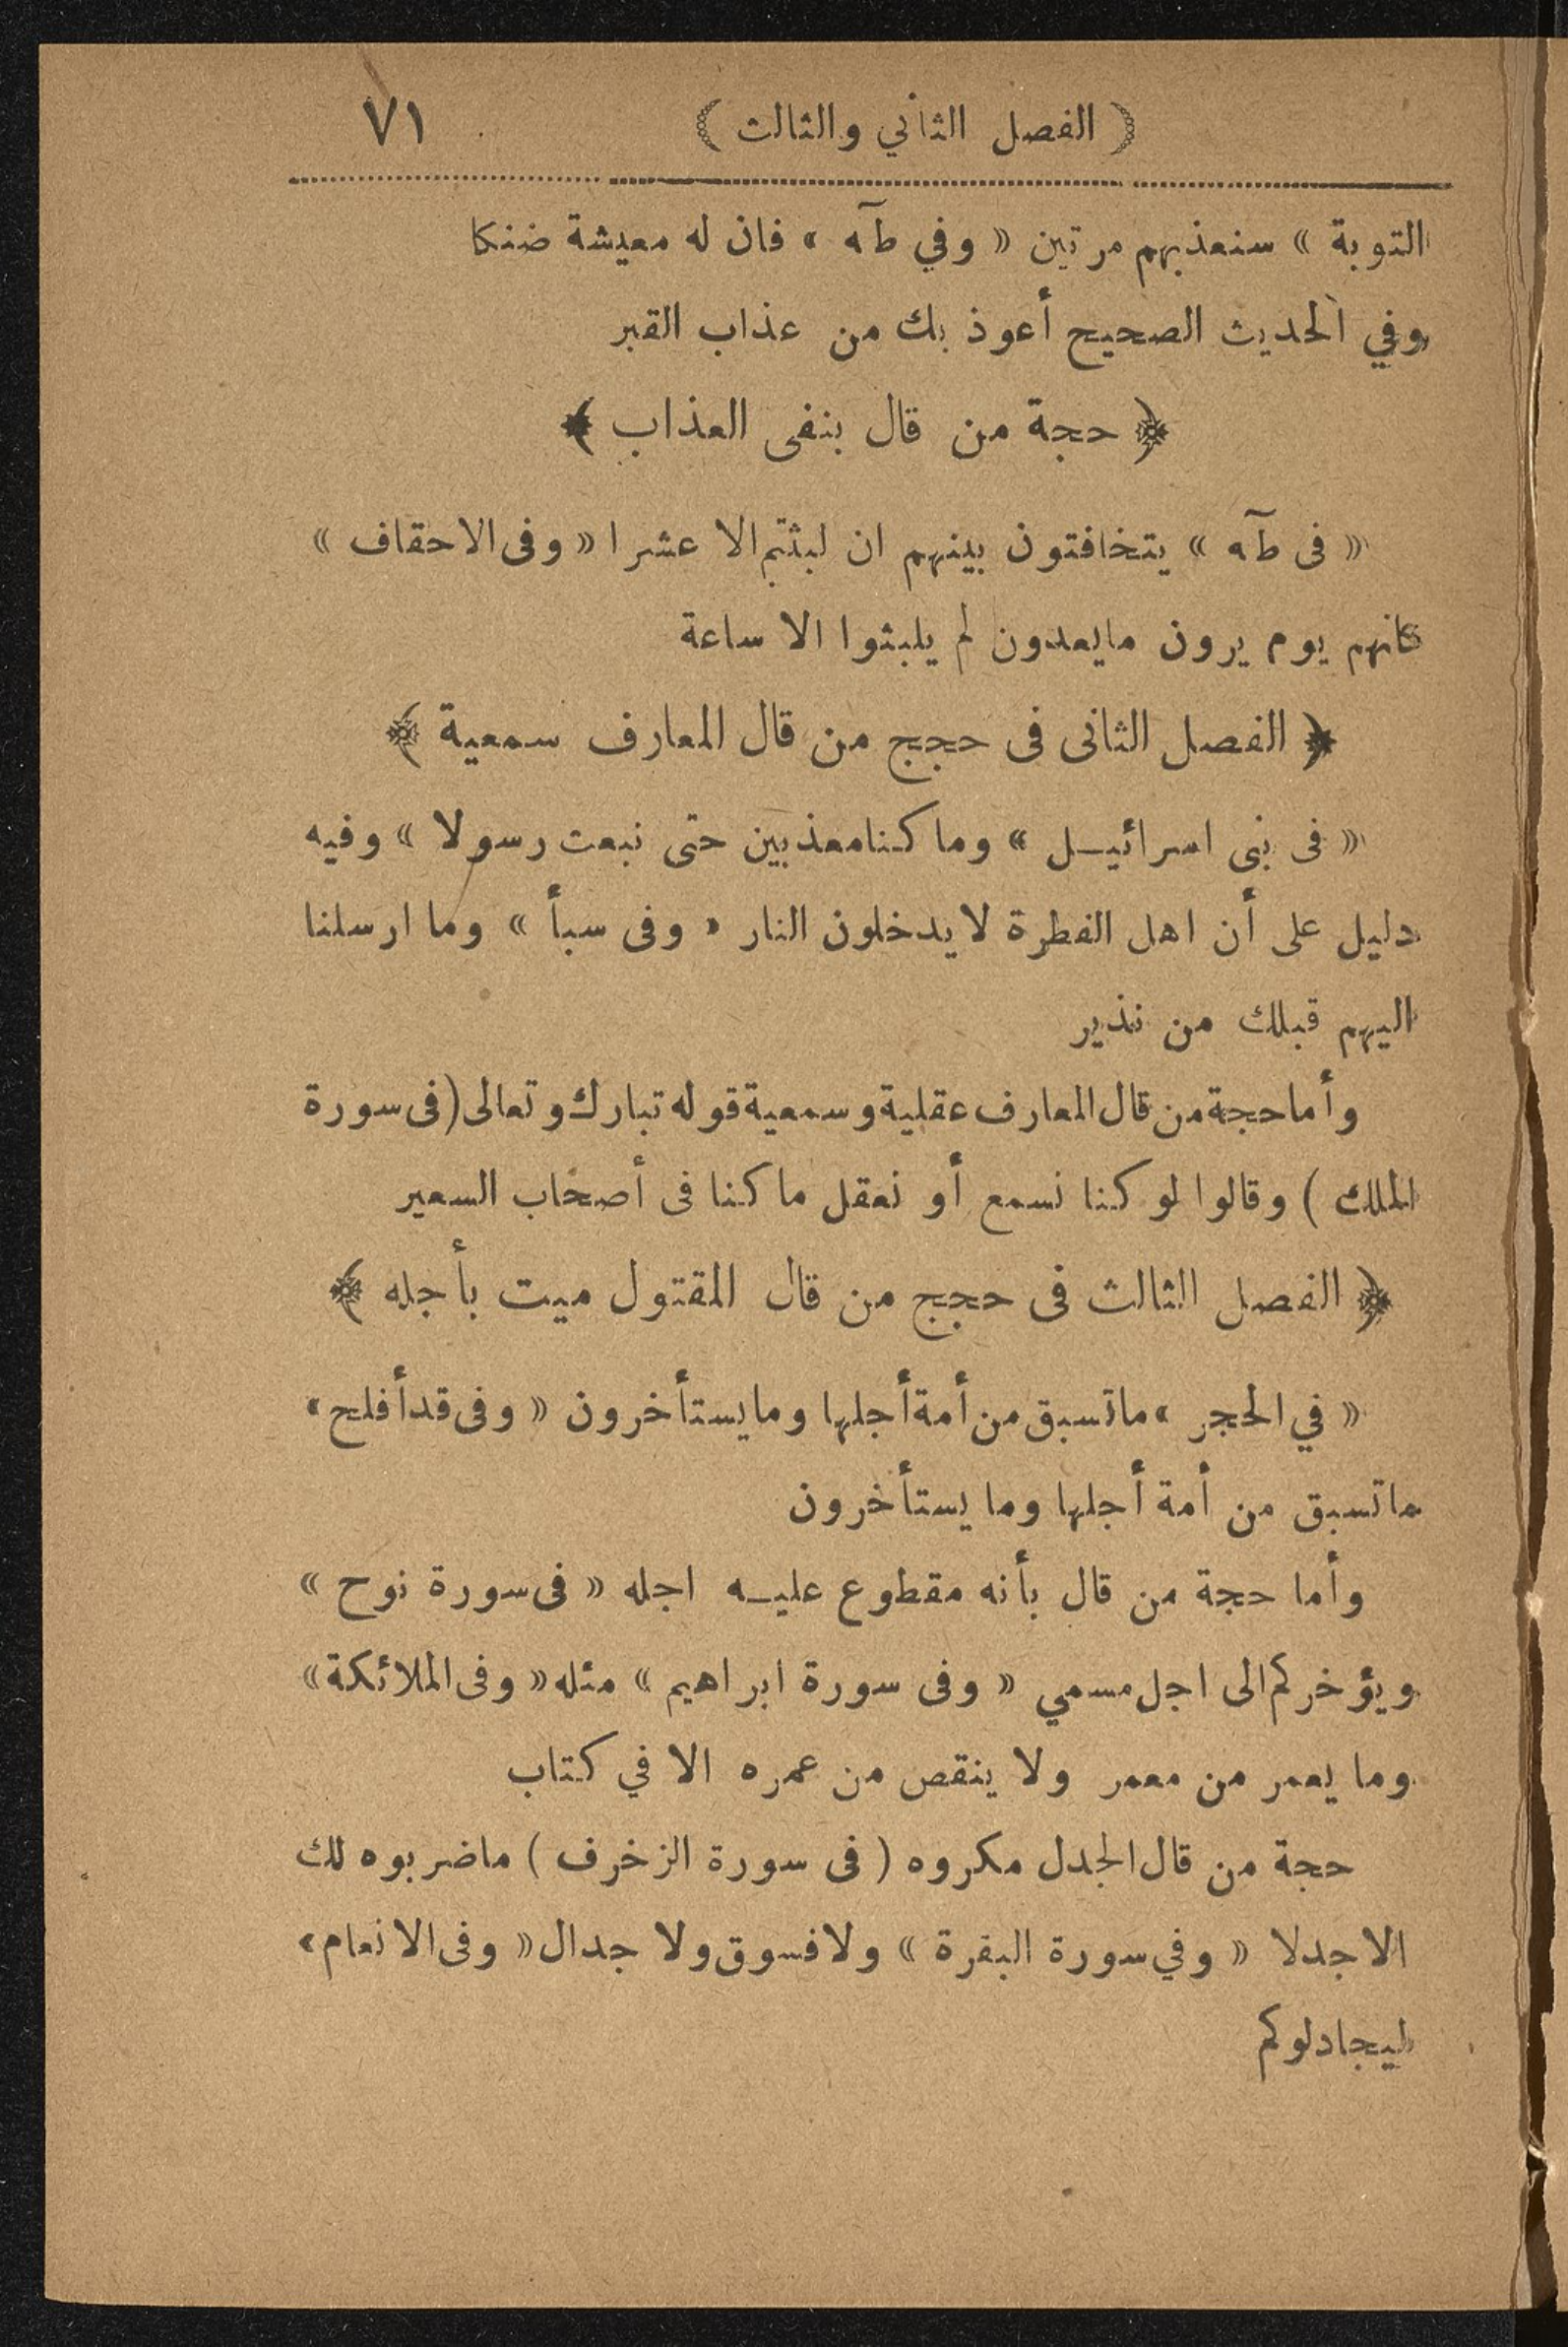 (الفصل الثاني والثالث) ٧١
التوبة » سنعذبهم مرتين « وفي طآه » فان له معيشة ضنكا
وفي الحديث الصحيح أعوذ بك من عذاب القبر
﴿ حجة من قال بنفى العذاب ﴾
« فى طآه » يتخافتون بينهم ان لبثتم الا عشرا « وفى الاحقاف »
كانهم يوم يرون مايعدون لم يلبثوا الا ساعة
﴿ الفصل الثانى فى حجج من قال المعارف سمعية ﴾
« فى بنى اسرائيل » وما كنا معذبين حتى نبعث رسولا » وفيه
دليل على أن اهل الفطرة لا يدخلون النار « وفى سبأ » وما ارسلنا
اليهم قبلك من نذير
وأما حجة من قال المعارف عقلية وسمعية قوله تبارك وتعالى (فى سورة
الملك ) وقالوا لو كنا نسمع أو نعقل ما كنا فى أصحاب السعير
﴿ الفصل الثالث فى حجج من قال المقتول ميت بأجله ﴾
« في الحجر » ماتسبق من أمة أجلها وما يستأخرون « وفى قد أفلح »
ماتسبق من أمة أجلها وما يستأخرون
وأما حجة من قال بأنه مقطوع عليه اجله « فى سورة نوح »
ويؤخركم الى اجل مسمي « وفى سورة ابراهيم » مثله « وفى الملائكة »
وما يعمر من معمر ولا ينقص من عمره الا في كتاب
حجة من قال الجدل مكروه ( فى سورة الزخرف ) ماضربوه لك
الا جدلا « وفي سورة البقرة » ولا فسوق ولا جدال « وفى الانعام »
ليجادلوكم